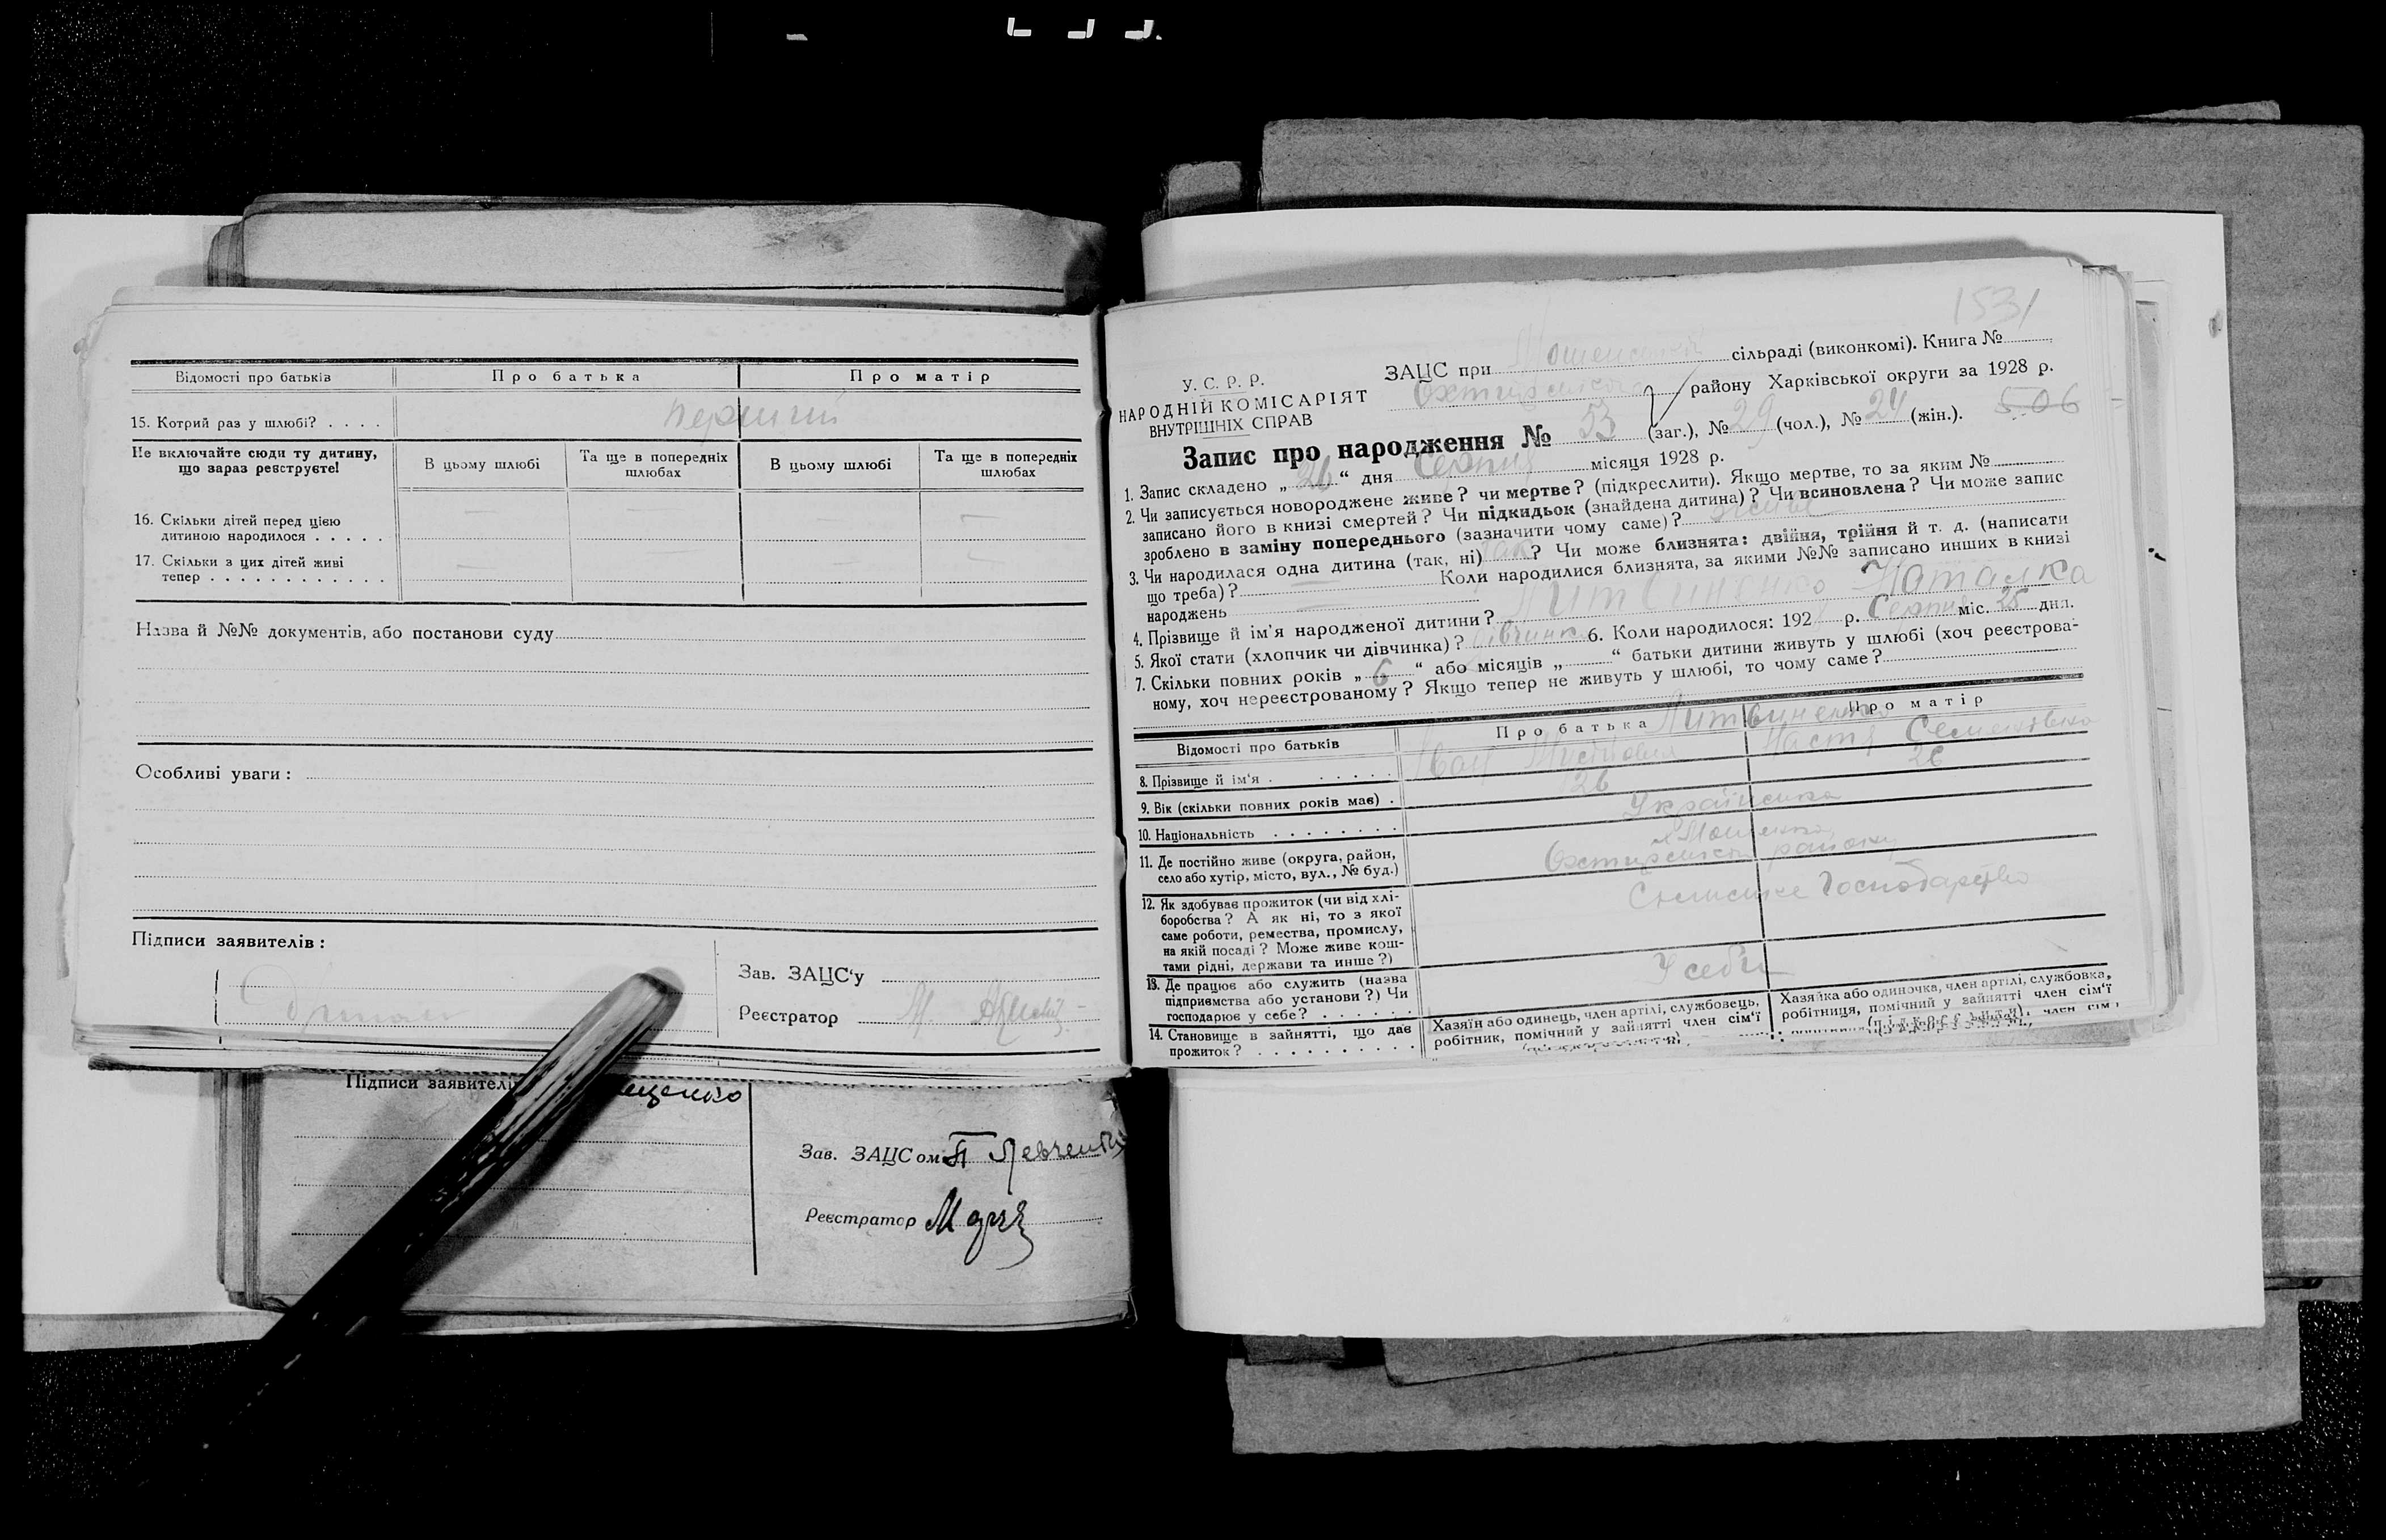 Відомості про батьків
Про батька
Про матір
15. Котрий раз у шлюбі? . . . .
перший
Не включайте сюди ту дитину,
що зараз реєструєте!
В цьому шлюбі
Та ще в попередніх
шлюбах
В цьому шлюбі
Та ще в попередніх
шлюбах
16. Скільки дітей перед цією
дитиною народилося . . . . .
— — — —
17. Скільки з цих дітей живі
тепер . . . . . . . . . . . .
— — —
Назва й №№ документів, або постанови суду
Особливі уваги:
Підписи заявителів:
Зав. ЗАЦС'у
Реєстратор М.
Підписи заявителі
ещенко
Зав. ЗАЦСом П Левченко
Реєстратор
1531
У. С. Р. Р.
НАРОДНІЙ КОМІСАРІЯТ
ВНУТРІШНІХ СПРАВ
ЗАЦС при сільраді (виконкомі). Книга №
Охтирського району Харківської округи за 1928 р.
506
Запис про народження № 53 (заг.), № 29 (чол.), № 24 (жін.).
1. Запис складено „ 26 “ дня Серпня місяця 1928 р.
2. Чи записується новороджене живе? чи мертве? (підкреслити). Якщо мертве, то за яким №
записано його в книзі смертей? Чи підкидьок (знайдена дитина)? Чи всиновлена? Чи може запис
зроблено в заміну попереднього (зазначити чому саме)? живе
3. Чи народилася одна дитина (так, ні) так? Чи може близнята: двійня, трійня й т. д. (написати
що треба)? — Коли народилися близнята, за якими №№ записано инших в книзі
народжень —
4. Прізвище й ім'я народженої дитини? Литвиненко Наталка
5. Якої стати (хлопчик чи дівчинка)? дівчинка 6. Коли народилося: 192 р. Серпня міс. 25 дня.
7. Скільки повних років „ 6 “ або місяців „ “ батьки дитини живуть у шлюбі (хоч реєстрова-
ному, хоч нереєстрованому? Якщо тепер не живуть у шлюбі, то чому саме?
Відомості про батьків
Про батька
Про матір
Литвиненко
8. Прізвище й ім'я . . . . . .
Іван
Настя Семенівна
9. Вік (скільки повних років має) .
26
26
10. Національність . . . . . . . .
Українська
11. Де постійно живе (округа, район,
село або хутір, місто, вул., № буд.)
Охтирського району
12. Як здобуває прожиток (чи від хлі-
боробства? А як ні, то з якої
саме роботи, ремества, промислу,
на якій посаді? Може живе кош-
тами рідні, держави та инше?)
Сільське Господарство
13. Де працює або служить (назва
підприємства або установи?) Чи
господарює у себе? . . . . . .
У себе
14. Становище в зайнятті, що дає
прожиток? . . . . . . . . . .
Хазяїн або одинець, член артілі, службовець,
робітник, помічний у зайнятті член сім'ї
Хазяйка або одиночка, член артілі, службовка,
робітниця, помічний у зайнятті член сім'ї